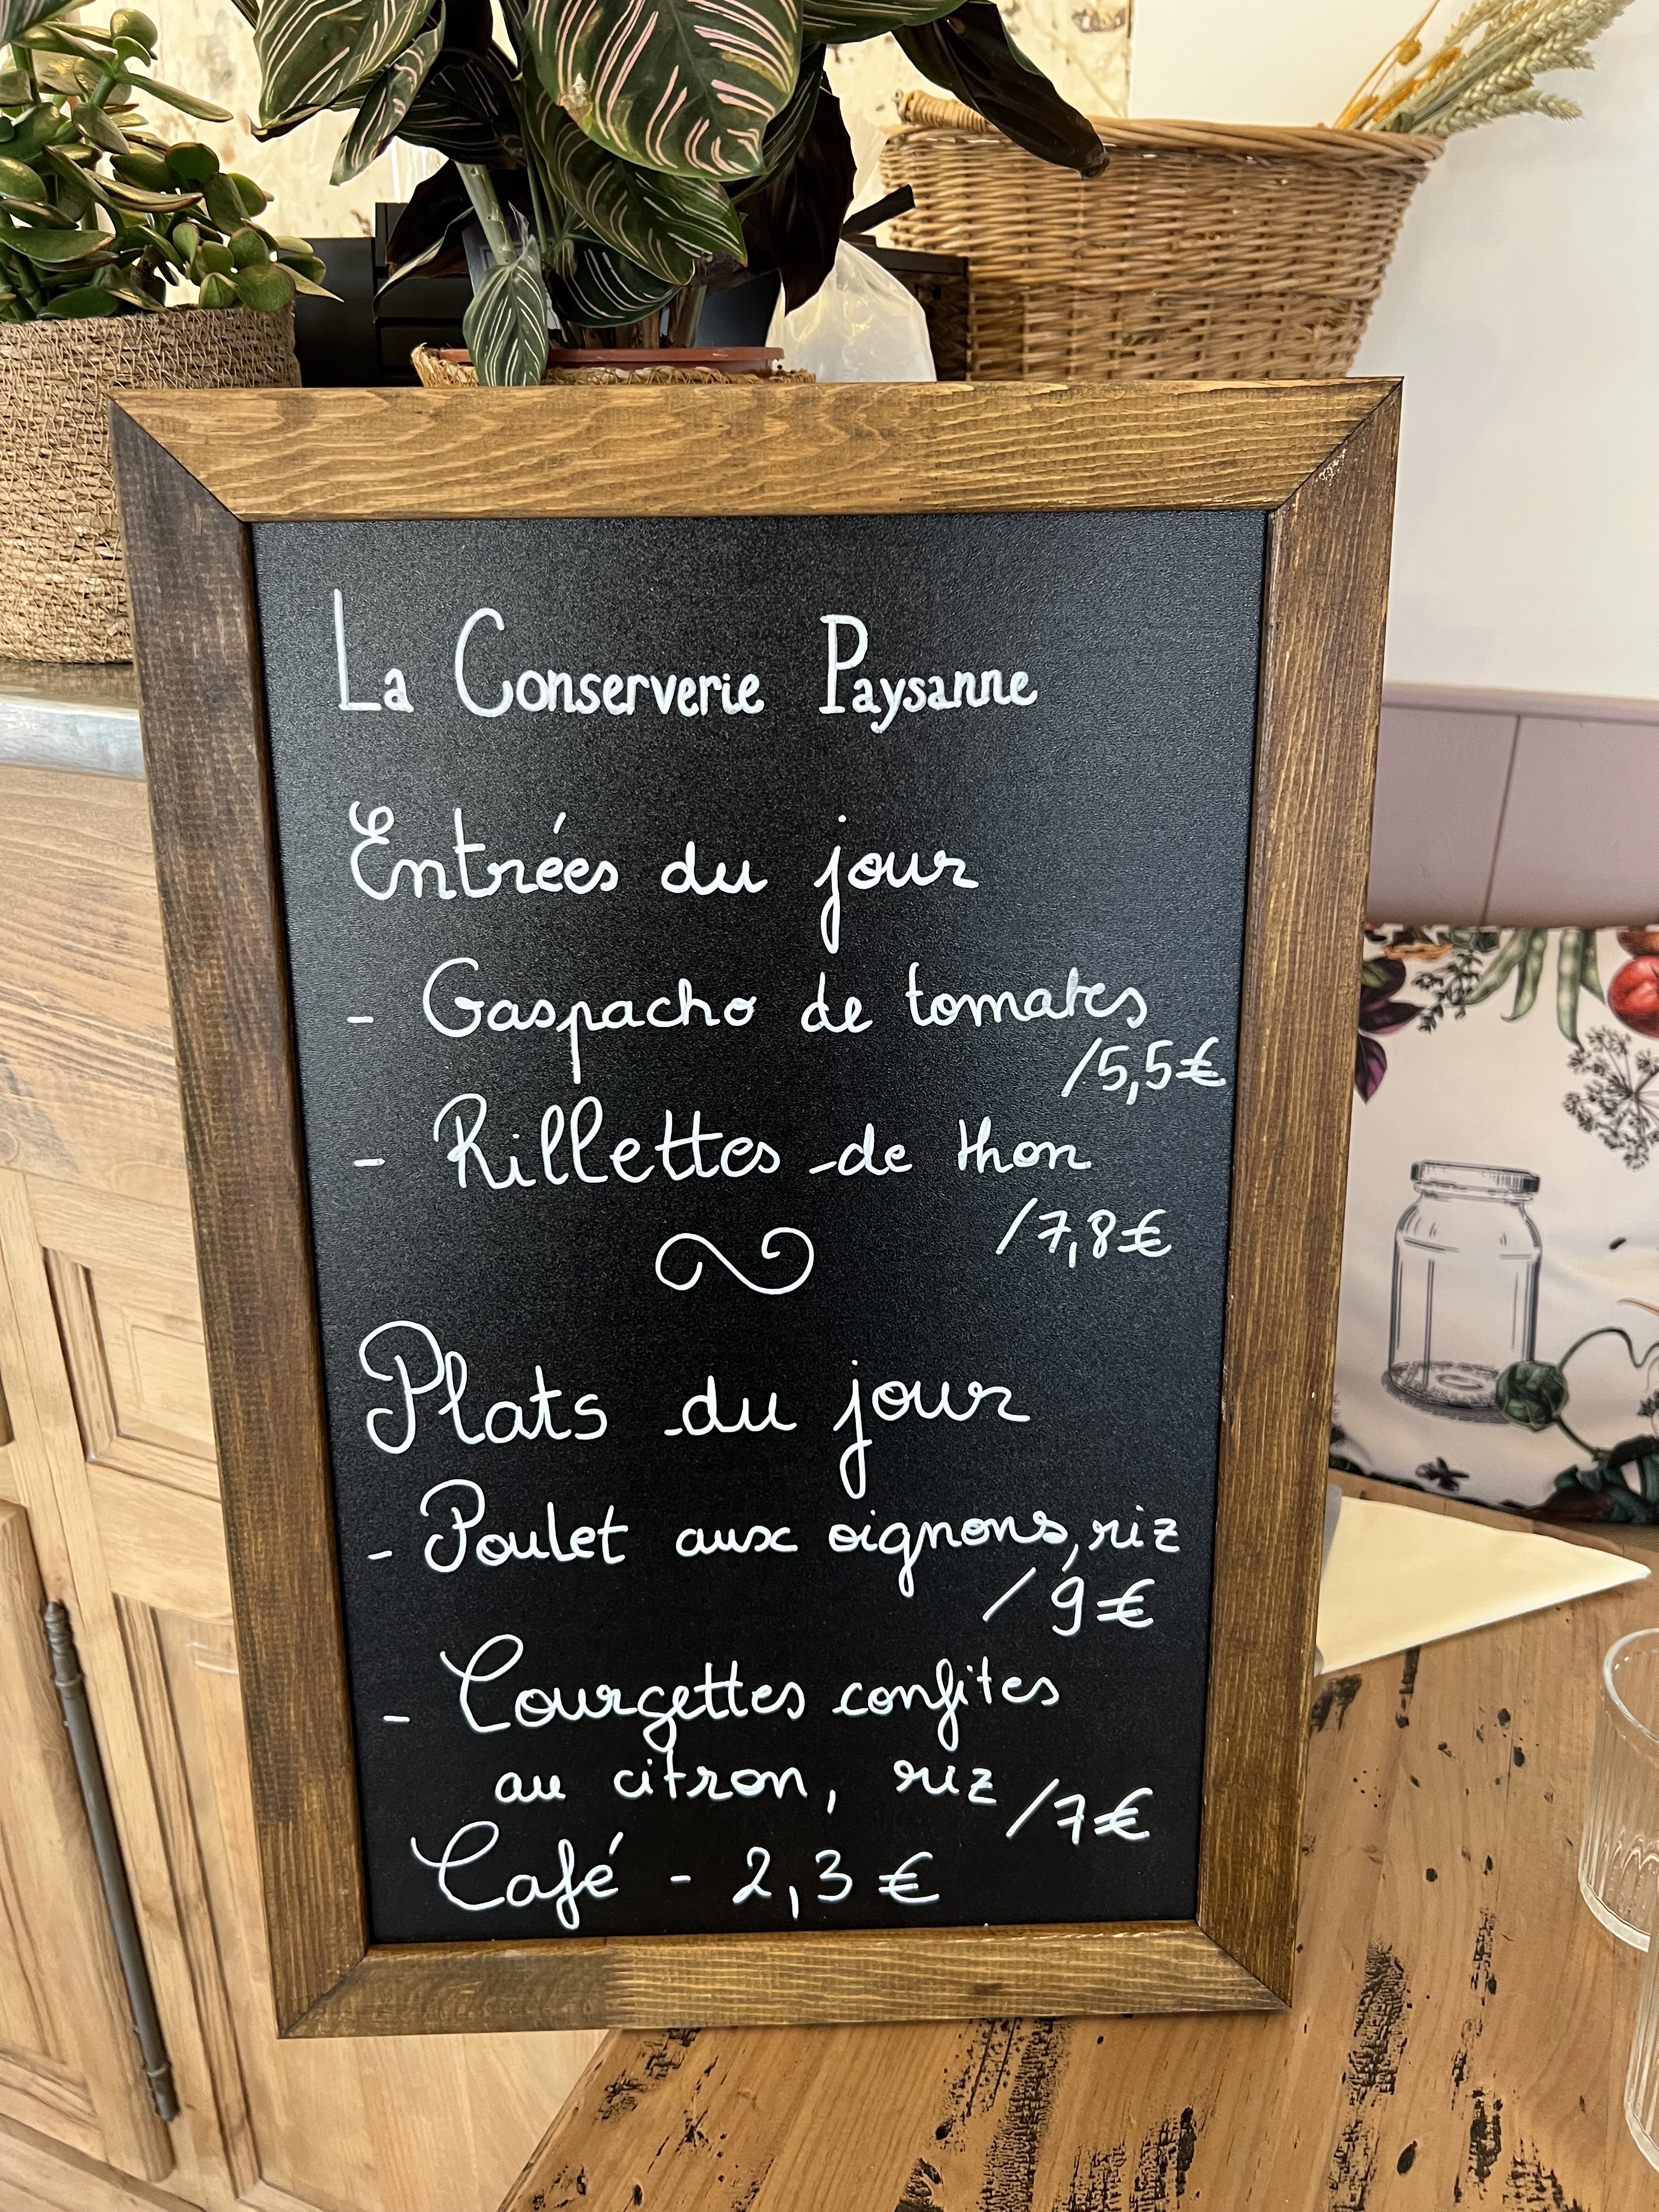 La Conserverie Paysanne
Entrées du jour
- Gaspacho de tomates
/5,5€
- Rillettes de thon
/7,8€
Plats du jour
- Poulet aux oignons, riz
/ 9€
- Courgettes confites
au citron, riz /7€
Café - 2,3€